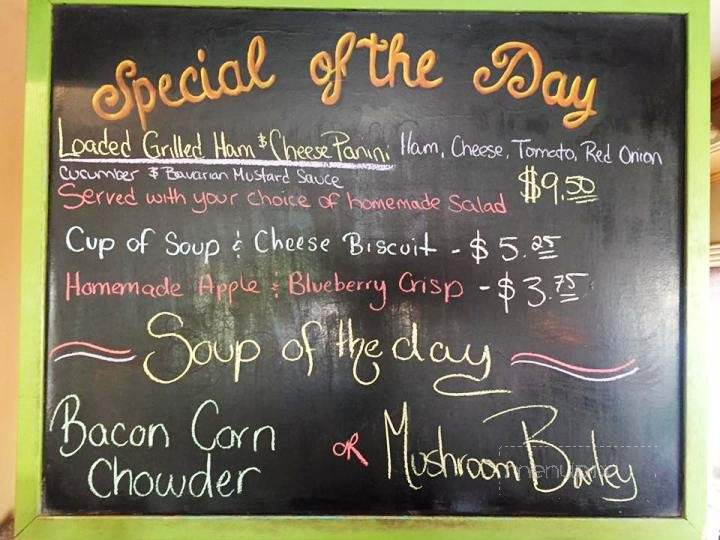 Special of the Day
Loaded Grilled Ham & Cheese Panini Ham, Cheese, Tomato, Red Onion
Cucumber & Bavarian Mustard Sauce
$9.50
Served with your choice of homemade Salad
Cup of Soup & Cheese Biscuit - $5.25
Homemade Apple & Blueberry Crisp - $3.75
Soup of the day
Bacon Corn Chowder
OR
Mushroom Barley